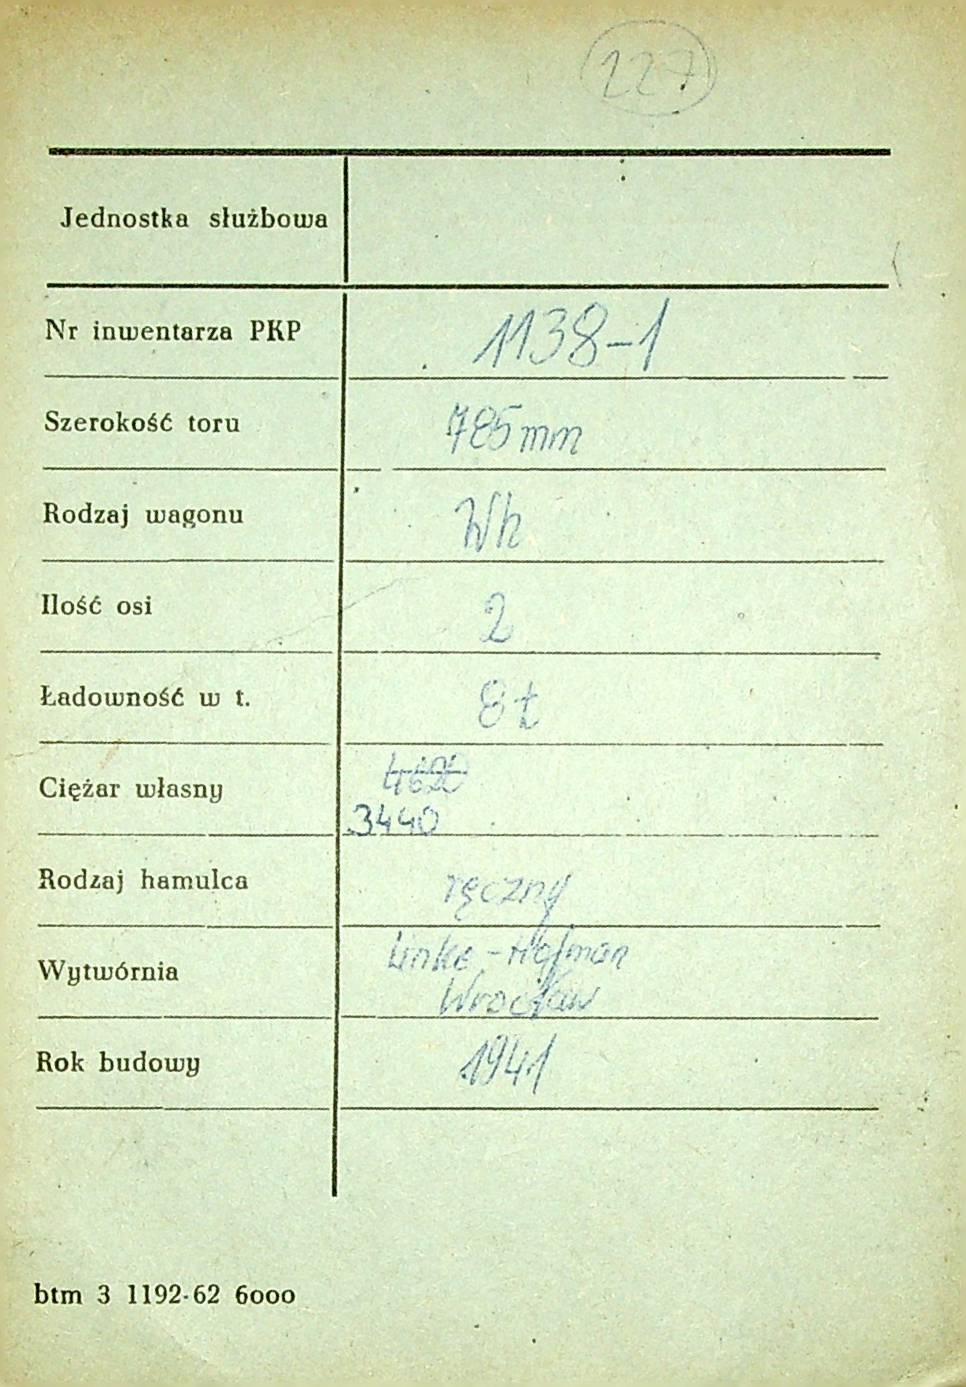 227
Jednostka służbowa
Nr inwentarza PKP 1138-1
Szerokość toru 785 mm
Rodzaj wagonu Wh
Ilość osi 2
Ładowność w t. 8 t
Ciężar własny 4620
3440
Rodzaj hamulca ręczny
Wytwórnia Linke-Hofman
Wrocław
Rok budowy 1941
btm 3 1192-62 6000